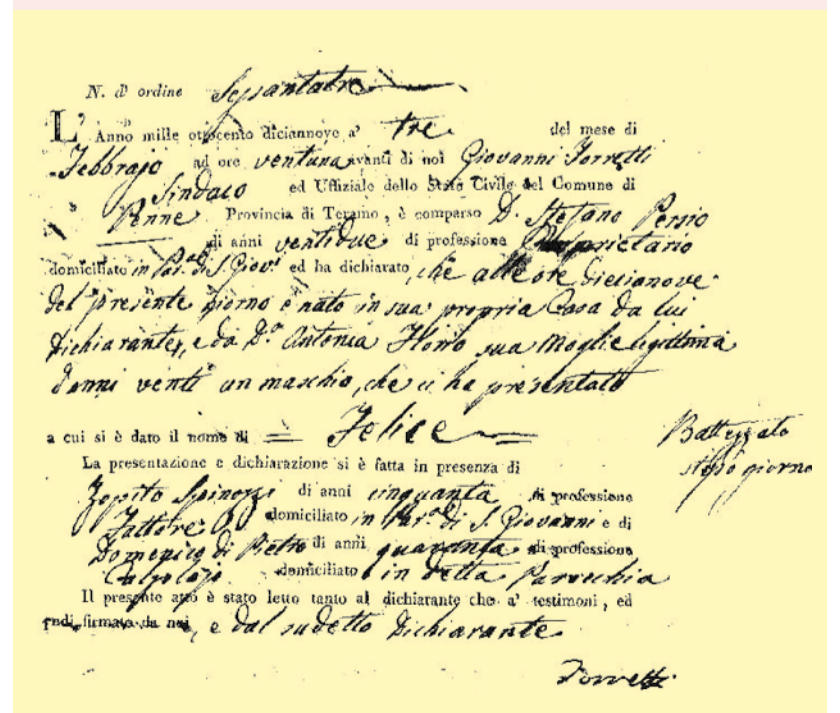 N. d' ordine Sessantatre
L' Anno mille ottocento diciannove a' tre del mese di
Febbrajo ad ore ventuna avanti di noi Giovanni Torretti
Sindaco ed Uffiziale dello Stato Civile del Comune di
Penne Provincia di Teramo, è comparso D. Stefano Persio
di anni ventidue di professione Proprietario
domiciliato in Par.a di S. Giov.i ed ha dichiarato, che alle ore diecianove
del presente giorno è nato in sua propria Casa da lui
dichiarante, e da D.a Antonia Florio sua Moglie legittima
d'anni venti un maschio, che ci ha presentato
a cui si è dato il nome di Felice
Battezzato
stesso giorno
La presentazione e dichiarazione si è fatta in presenza di
Zopito Spinozzi di anni cinquanta di professione
Fattore domiciliato in Par.a di S. Giovanni e di
Domenico di Pietro di anni quaranta di professione
Calzolajo domiciliato in detta Parocchia
Il presente atto è stato letto tanto al dichiarante che a' testimoni, ed
indi firmato da noi, e dal sudetto dichiarante
Torretti